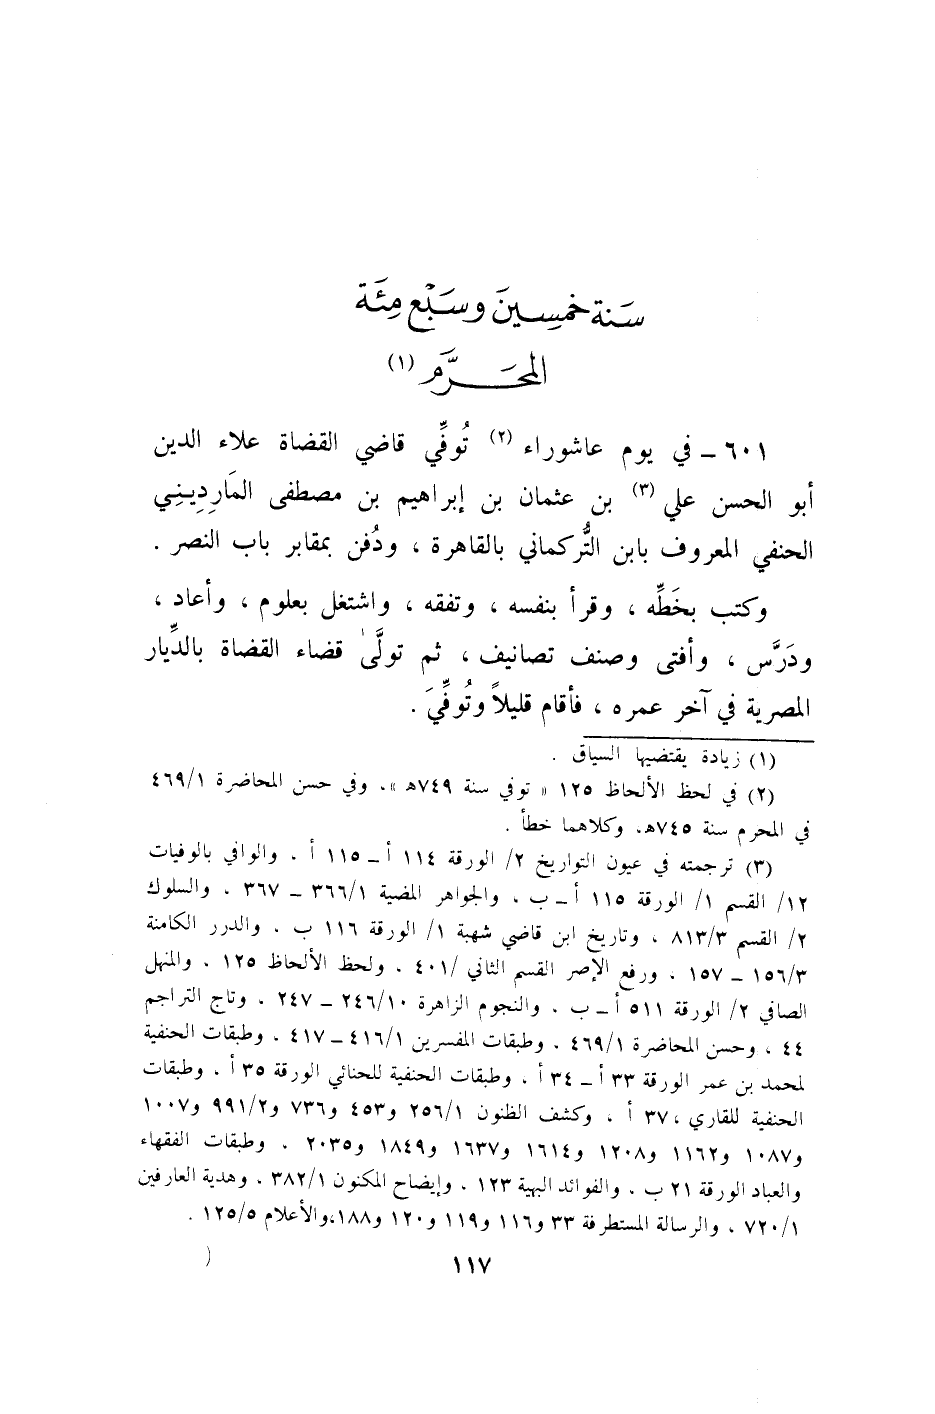 سَنة خمسِينَ وسَبْع مِئَة
المحَرَّم (١)
٦٠١ ــ في يوم عاشوراء (٢) تُوفِّي قاضي القضاة علاء الدين
أبو الحسن علي (٣) بن عثمان بن إبراهيم بن مصطفى المَارِدِيـنِي
الحنفي المعروف بابن التُّركماني بالقاهرة ، ودُفن بمقابر باب النصر .
وكتب بخَطِّه ، وقرأ بنفسه ، وتفقه ، واشتغل بعلوم ، وأعاد ،
ودَرَّس ، وأفتى وصنف تصانيف ، ثم تولَّىٰ قضاء القضاة بالدِّيار
المصرية في آخر عمره ، فأقام قليلاً وتُوفِّيَ .
(١) زيادة يقتضيها السياق .
(٢) في لحظ الألحاظ ١٢٥ « توفي سنة ٧٤٩هـ ». وفي حسن المحاضرة ٤٦٩/١
في المحرم سنة ٧٤٥هـ. وكلاهما خطأ .
(٣) ترجمته في عيون التواريخ ٢/ الورقة ١١٤ أ ــ ١١٥ أ . والوافي بالوفيات
١٢/ القسم ١/ الورقة ١١٥ أ ــ ب . والجواهر المضية ٣٦٦/١ ــ ٣٦٧ . والسلوك
٢/ القسم ٨١٣/٣ ، وتاريخ ابن قاضي شهبة ١/ الورقة ١١٦ ب . والدرر الكامنة
١٥٦/٣ ــ ١٥٧ . ورفع الإصر القسم الثاني /٤٠١ . ولحظ الألحاظ ١٢٥ . والمنهل
الصافي ٢/ الورقة ٥١١ أ ــ ب . والنجوم الزاهرة ٢٤٦/١٠ ــ ٢٤٧ . وتاج التراجم
٤٤ ، وحسن المحاضرة ٤٦٩/١ . وطبقات المفسرين ٤١٦/١ ــ ٤١٧ . وطبقات الحنفية
لمحمد بن عمر الورقة ٣٣ أ ــ ٣٤ أ . وطبقات الحنفية للحنائي الورقة ٣٥ أ . وطبقات
الحنفية للقاري ،٣٧ أ . وكشف الظنون ٢٥٦/١ و٤٥٣ و٧٣٦ و٩٩١/٢ و١٠٠٧
و١٠٨٧ و١١٦٢ و١٢٠٨ و١٦١٤ و١٦٣٧ و١٨٤٩ و٢٠٣٥ . وطبقات الفقهاء
والعباد الورقة ٢١ ب . والفوائد البهية ١٢٣ . وإيضاح المكنون ٣٨٢/١ . وهدية العارفين
٧٢٠/١ . والرسالة المستطرفة ٣٣ و١١٦ و١١٩ و١٢٠ و١٨٨،والأعلام ١٢٥/٥ .
١١٧